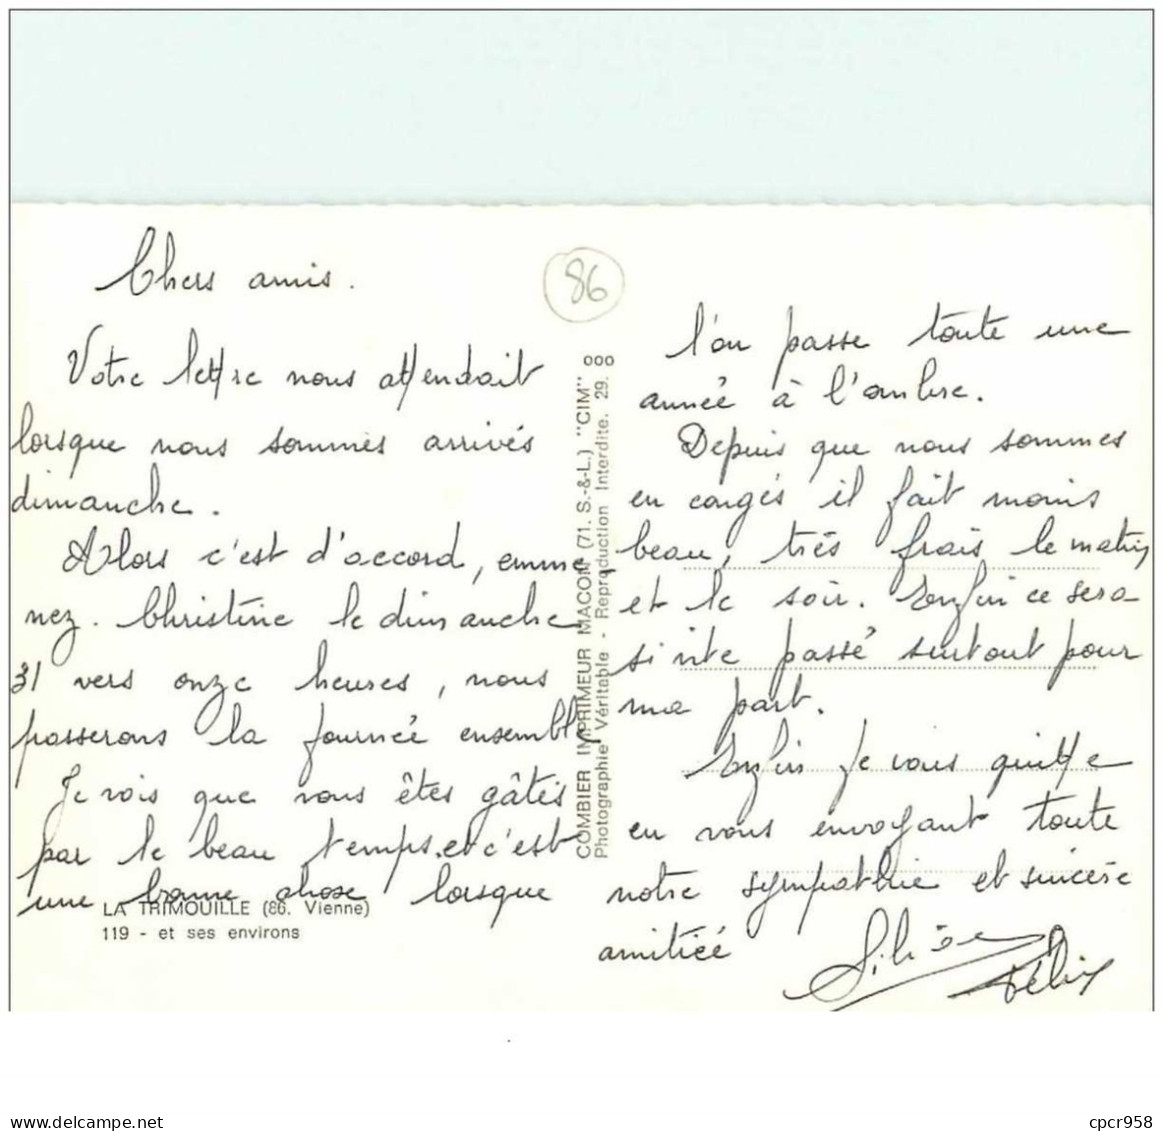 Chers amis.
Votre lettre nous attendait
lorsque nous sommes arrivés
dimanche.
Alors c'est d'accord, emme-
nez. Christine le dimanche
31 vers onze heures, nous
passerons la journée ensemble
Je vois que vous êtes gâtés
par le beau temps. et c'est
une bonne chose lorsque
LA TRIMOUILLE (86. Vienne)
119 - et ses environs
86
COMBIER IMPRIMEUR MACON (71. S.-&-L.) "CIM"
Photographie Véritable - Reproduction Interdite. 29.
ooo
l'on passe toute une
année à l'ombre.
Depuis que nous sommes
en congés il fait moins
beau, très frais le matin
et le soir. Enfin ce sera
si vite passé surtout pour
ma part.
Enfin je vous quitte
en vous envoyant toute
notre sympathie et sincère
amitiée
cpcr958